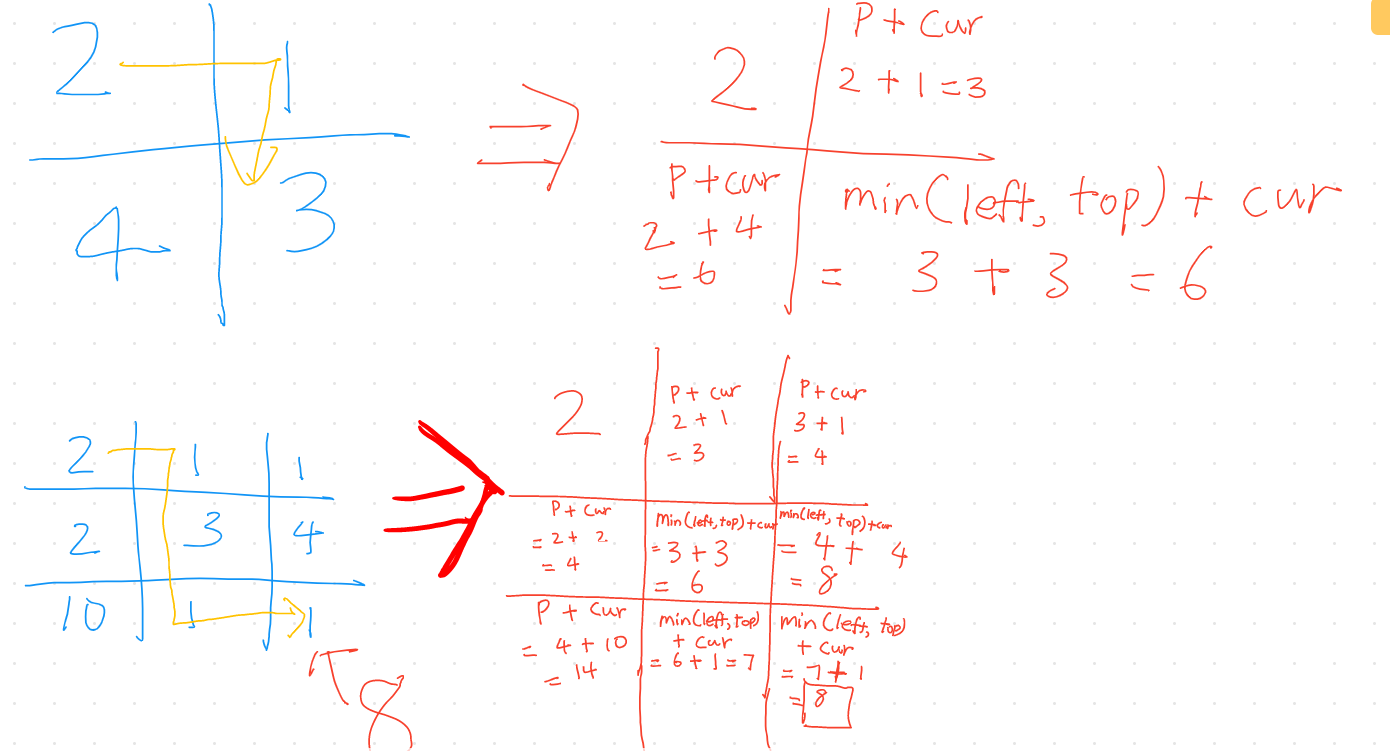 2 1
4 3
2
P + Cur
2 + 1 = 3
P + cur
2 + 4
= 6
min(left, top) + cur
= 3 + 3 = 6
2 1 1
2 3 4
10 1 1
8
2
P + cur
2 + 1
= 3
P + cur
3 + 1
= 4
P + cur
= 2 + 2
= 4
min(left, top) + cur
= 3 + 3
= 6
min(left, top) + cur
= 4 + 4
= 8
P + cur
= 4 + 10
= 14
min(left, top)
+ cur
= 6 + 1 = 7
min(left, top)
+ cur
= 7 + 1
= 8